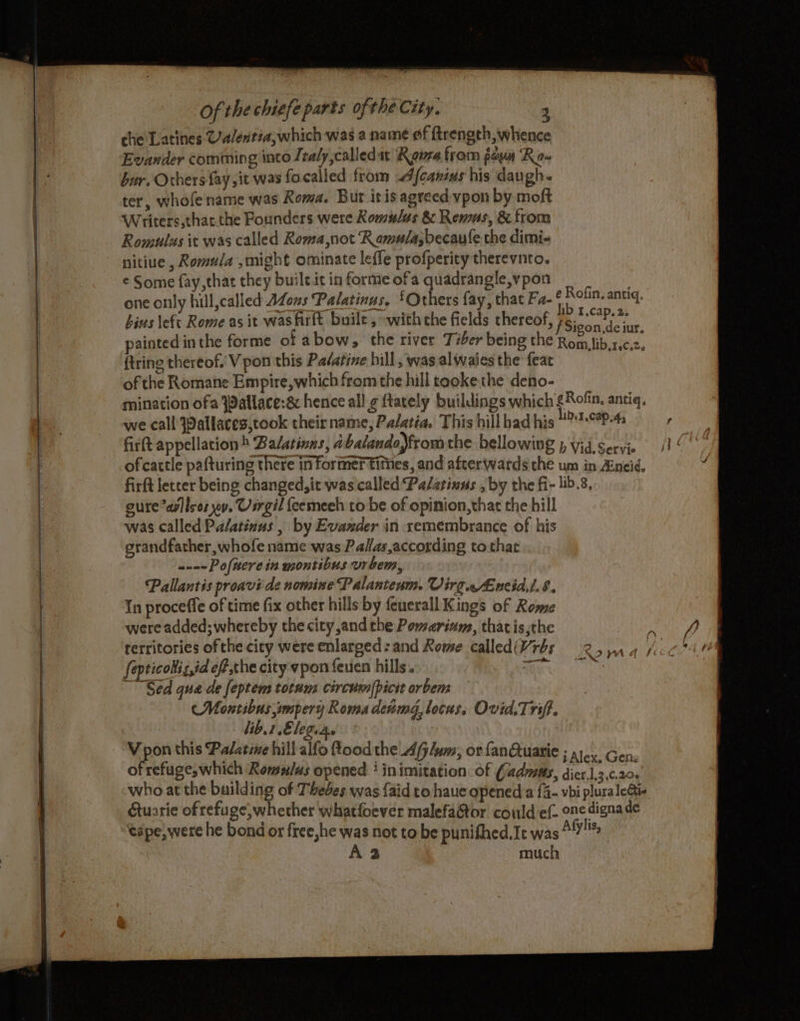 Of the chiefe parts of the City. 3
the Latines Valentia, which was a name of ſtrength, whence
Evander comming into Italy, called it Roma from ῥώμη Ro-
bur. Others ſay, it was ſo called from Aſcanius his daugh-
ter, whoſe name was Roma. But it is agreed vpon by moſt
Writers, that the Founders were Romulus & Remus, & from
Romulus it was called Roma, not Romula, becauſe the dimi-
nitiue, Romula, might ominate leſſe proſperity therevnto.
e Some ſay, that they built it in forme of a quadrangle, vpon
one only hill, called Mons Palatinus. f Others ſay, that Fa-
bius left Rome as it was firſt built, with the fields thereof,
painted in the forme of a bow, the river Tiber being the
ſtring thereof. Vpon this Palatine hill, was alwaies the ſeat
of the Romane Empire, which from the hill tooke the deno-
mination of a Pallace: & hence all g ſtately buildings which
we call Pallaces, took their name, Palatia. This hill had his
firſt appellation h Balatinus, à balando, from the bellowing
of cattle paſturing there in former times, and afterwards the
firſt letter being changed, it was called Palatinus, by the fi-
gure ἀντίστοιχον. Virgil ſeemeth to be of opinion, that the hill
was called Palatinus, by Evander in remembrance of his
grandfather, whoſe name was Pallas, according to that
---- Poſuere in montibus urbem,
Pallantis proavi de nomine Palanteum. Virg. Æneid. l. 8.
In proceſſe of time ſix other hills by ſeuerall Kings of Rome
were added; whereby the city, and the Pomœrium, that is, the
territories of the city were enlarged: and Rome called (Vrbs
ſepticollis, id eſt, the city vpon ſeuen hills.
Sed quæ de ſeptem totum circumſpicit orbem
Montibus, imperij Roma deûmq, locus. Ovid. Triſt.
lib. 1. Eleg. 4.
Vpon this Palatine hill alſo ſtood the Aſylum, or ſanctuarie
of refuge, which Romulus opened i in imitation of Cadmus,
who at the building of Thebes was ſaid to haue opened a ſã-
ctuarie of refuge, whether whatſoever malefactor could eſ-
cape, were he bond or free, he was not to be puniſhed. It was
A 2 much
e Roſin. antiq.
lib 1. cap. 2.
f Sigon. de iur.
Rom. lib. 1. c. 2.
g Roſin. antiq.
lib. 1. cap. 4.
h Vid. Servi-
um in Æneid.
lib. 8.
Roma
i Alex. Gen.
dier. l. 3. c. 20.
vbi plura lectio-
one digna de
Aſylis,